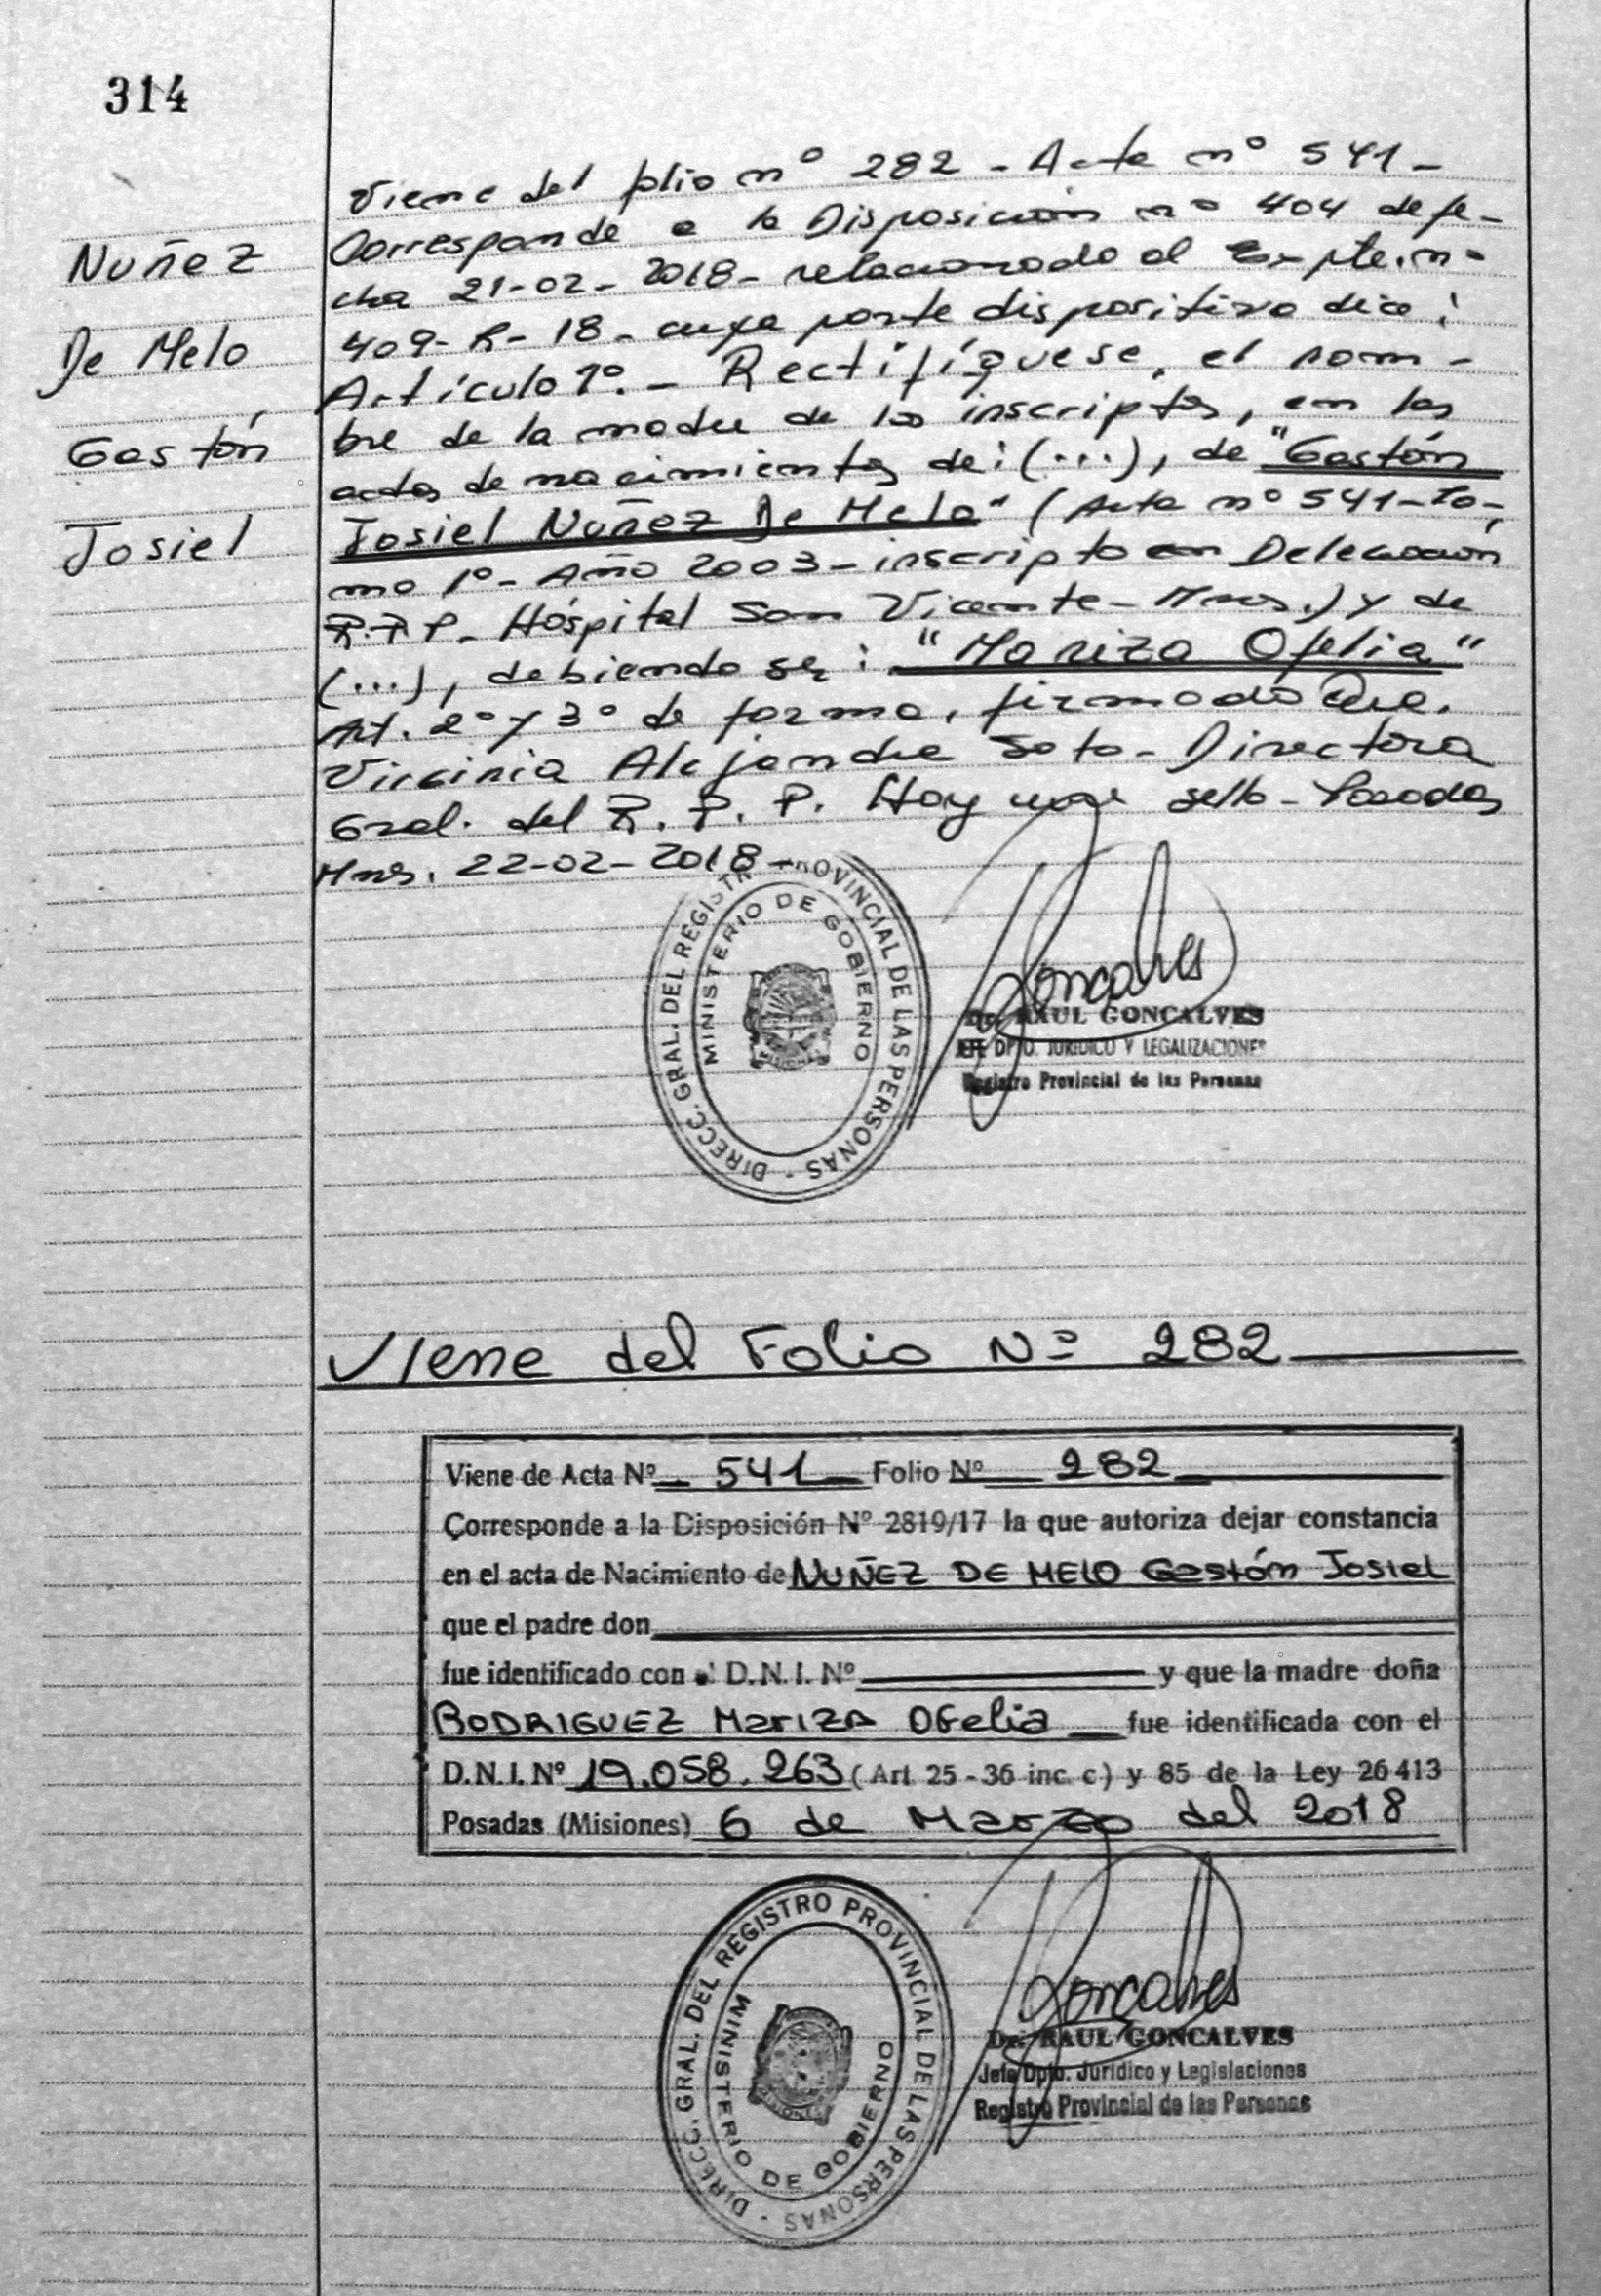 314
Nuñez
De Melo
Gastón
Josiel
Viene del folio nº 282 - Acta nº 541 -
Corresponde a la Disposición nº 404 de fe-
cha 21-02-2018 - relacionado al Expte. nº
409-R-18 - cuya parte dispositiva dice:
Artículo 1º.- Rectifíquese, el nom-
bre de la madre de los inscriptos, en las
actas de nacimientos de: (...), de "Gastón
Josiel Nuñez De Melo" (Acta nº 541 - To-
mo 1º - Año 2003 - inscripto en Delegación
R.P.P. Hospital San Vicente - Mnes.) y de
(...), debiendo ser: "Mariza Ofelia"
Art. 2º y 3º de forma, firmado Dra.
Virginia Alejandra Soto - Directora
Gral. del R.P.P. Hay un sello - Posadas
Mnes. 22-02-2018 -
DIRECC. GRAL. DEL REGISTRO PROVINCIAL DE LAS PERSONAS -
MINISTERIO DE GOBIERNO
MISIONES
Goncalves
Dr. RAUL GONCALVES
JEFE DPTO. JURIDICO Y LEGALIZACIONES
Registro Provincial de las Personas
Viene del Folio Nº 282
Viene de Acta Nº 541 Folio Nº 282
Corresponde a la Disposición Nº 2819/17 la que autoriza dejar constancia
en el acta de Nacimiento de NUÑEZ DE MELO Gastón Josiel
que el padre don
fue identificado con el D.N.I. Nº y que la madre doña
RODRIGUEZ Mariza Ofelia fue identificada con el
D.N.I. Nº 19.058.263 (Art 25 - 36 inc. c) y 85 de la Ley 26413
Posadas (Misiones) 6 de Marzo del 2018
DIRECC. GRAL. DEL REGISTRO PROVINCIAL DE LAS PERSONAS -
MINISTERIO DE GOBIERNO
MISIONES
Goncalves
Dr. RAUL GONCALVES
Jefe Dpto. Jurídico y Legislaciones
Registro Provincial de las Personas